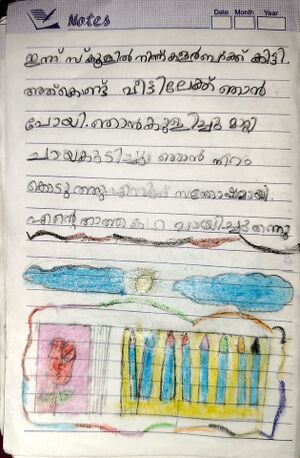 Notes
Date Month Year
ഇന്ന് സ്കൂളിൽ നിന്ന് കളർബുക്ക് കിട്ടി.
അത്കൊണ്ട് വീട്ടിലേക്ക് ഞാൻ
പോയി. ഞാൻ കുളിച്ചു മാറ്റി
ചായകുടിച്ചു ഞാൻ നിറം
കൊടുത്തു. സന്തോഷമായി.
എന്റെ താത്ത കഥ വായിച്ചു തന്നു